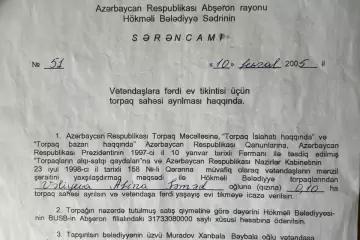 Azərbaycan Respublikası Abşeron rayonu
Hökməli Bələdiyyə Sədrinin
SƏRƏNCAMI
№ 51 "10" 2005 il
Vətəndaşlara fərdi ev tikintisi üçün
torpaq sahəsi ayrılması haqqında.
1. Azərbaycan Respublikası Torpaq Məcəlləsinə, "Torpaq İslahatı haqqında" və
"Torpaq bazarı haqqında" Azərbaycan Respublikası Qanunlarına, Azərbaycan
Respublikası Prezidentinin 1997-ci il 10 yanvar tarixli Fərmanı ilə təsdiq edilmiş
"Torpaqların alqı-satqı qaydaları"na və Azərbaycan Respublikası Nazirlər Kabinetinin
23 iyul 1998-ci il tarixli 158 №-li Qərarına müvafiq olaraq vətəndaşların mənzil
şəraitini yaxşılaşdırmaq məqsədi ilə Hökməli Bələdiyyə torpaqlarından
oğluna (qızına) 0,10 ha
torpaq sahəsi ayrılsın və vətəndaşa fərdi yaşayış evi tikməyə icazə verilsin.
2. Torpağın nəzərdə tutulmuş satış qiymətinə görə dəyərini Hökməli Bələddiyyəsi-
nin BUSB-in Abşeron filialındakı 3173308000 saylı xüsusi hesabına ödənilsin.
3. Tapşırılsın bələdiyyənin üzvü Muradov Xanbala Baybala oğlu vətəndaşı